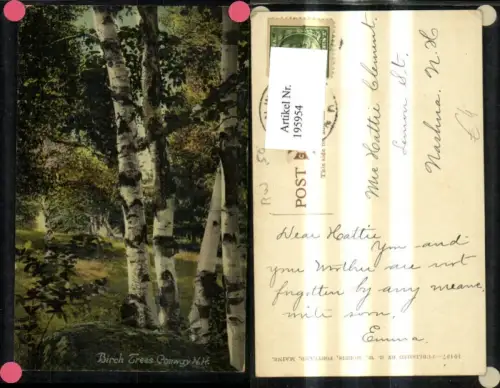 Birch Trees Conway N.H.
Artikel Nr.
195954
POST
This side
RW 50
Mrs Hattie Clement
Lemon St.
Nashua. N.H
Dear Hattie
You and
your Mother are not
forgotten by any means,
write soon.
Emma.
PUBLISHED BY G. W. MORRIS, PORTLAND, MAINE.